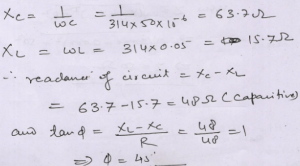 Xc = 1/ωc = 1/314×50×10⁻⁶ = 63.7Ω
XL = ωL = 314×0.05 = 15.7Ω
∴ readance of circuit = Xc - XL
= 63.7-15.7 = 48Ω (capacitive)
and tanϕ = XL-Xc/R = 48/48 = 1
⇒ ϕ = 45°